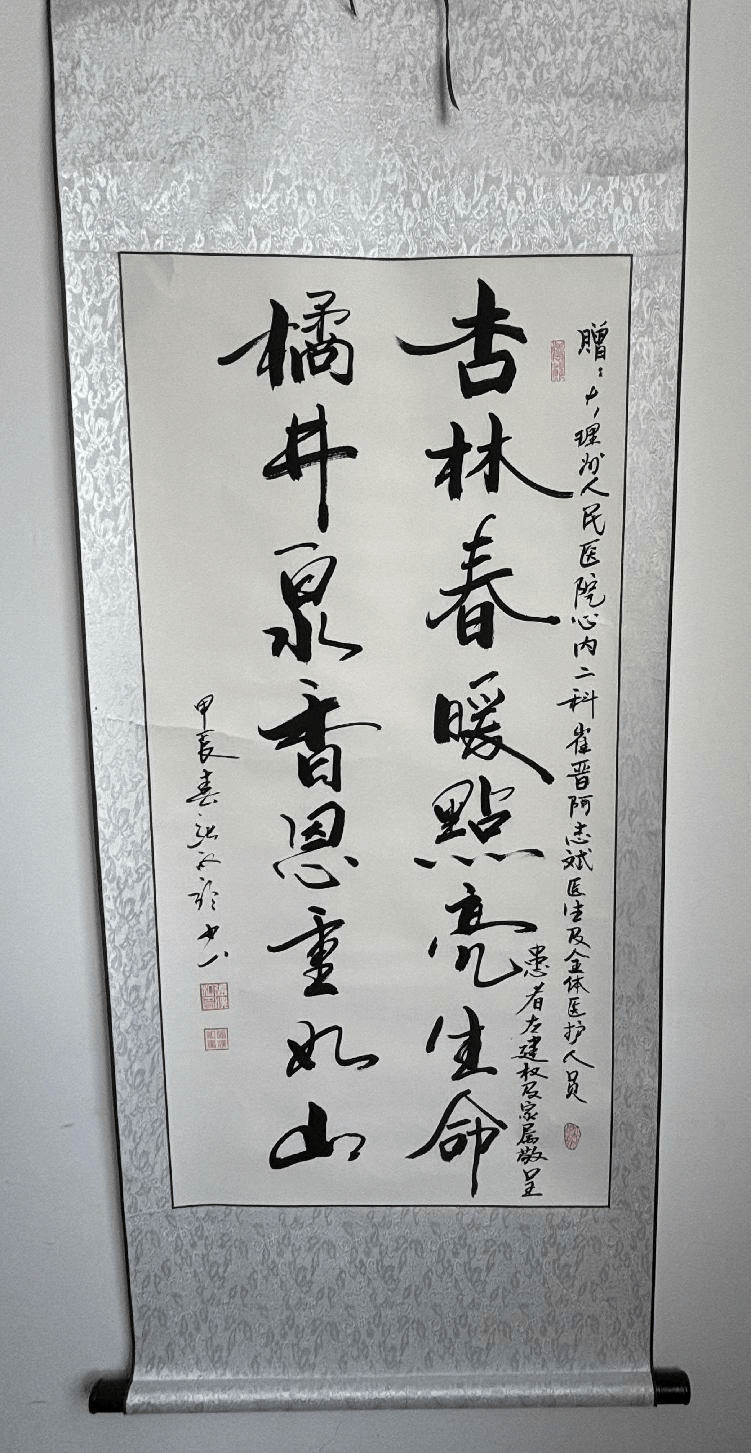 赠：大理州人民医院心内二科崔晋阿志斌医生及全体医护人员
杏林春暖點亮生命
患者左建权及家属敬呈
橘井泉香恩重如山
甲辰春